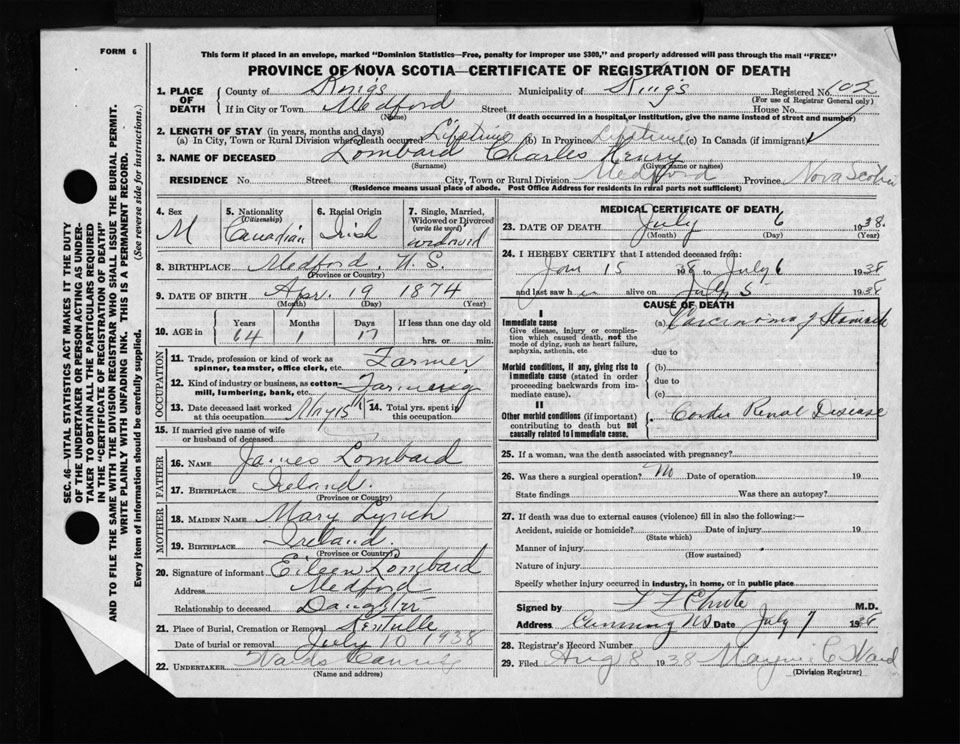 FORM 6
This form if placed in an envelope, marked "Dominion Statistics—Free, penalty for improper use $300," and properly addressed will pass through the mail "FREE"
PROVINCE OF NOVA SCOTIA—CERTIFICATE OF REGISTRATION OF DEATH
1. PLACE OF DEATH
County of Kings Municipality of Kings Registered No. 102
(For use of Registrar General only)
If in City or Town Medford Street House No.
(Name) (If death occurred in a hospital or institution, give the name instead of street and number)
2. LENGTH OF STAY (in years, months and days)
(a) In City, Town or Rural Division where death occurred Lifetime (b) In Province Lifetime (c) In Canada (if immigrant)
3. NAME OF DECEASED Lombard Charles Henry
(Surname) (Given name or names)
RESIDENCE No. Street City, Town or Rural Division Medford Province Nova Scotia
(Residence means usual place of abode. Post Office Address for residents in rural parts not sufficient)
4. Sex M
5. Nationality (Citizenship) Canadian
6. Racial Origin Irish
7. Single, Married, Widowed or Divorced (write the word) widowed
8. BIRTHPLACE Medford. N.S.
(Province or Country)
9. DATE OF BIRTH Apr. 19 1874
(Month) (Day) (Year)
10. AGE in Years Months Days If less than one day old
64 1 17 hrs. or min.
OCCUPATION
11. Trade, profession or kind of work as spinner, teamster, office clerk, etc. Farmer
12. Kind of industry or business, as cotton-mill, lumbering, bank, etc. Farming
13. Date deceased last worked at this occupation May 15
14. Total yrs. spent in this occupation.
15. If married give name of wife or husband of deceased
FATHER
16. NAME James Lombard
17. BIRTHPLACE Ireland.
(Province or Country)
MOTHER
18. MAIDEN NAME Mary Lynch
19. BIRTHPLACE Ireland.
(Province or Country)
20. Signature of informant Eileen Lombard
Address Medford
Relationship to deceased Daughter
21. Place of Burial, Cremation or Removal Kentville
Date of burial or removal July 10 1938
22. UNDERTAKER
(Name and address)
MEDICAL CERTIFICATE OF DEATH
23. DATE OF DEATH July 6 1938.
(Month) (Day) (Year)
24. I HEREBY CERTIFY that I attended deceased from:
Jan 15 to July 6 1938
and last saw h im alive on July 5 1938
CAUSE OF DEATH
I
Immediate cause
Give disease, injury or complication which caused death, not the mode of dying, such as heart failure, asphyxia, asthenia, etc
(a) Carcinoma of Stomach
due to
Morbid conditions, if any, giving rise to immediate cause (stated in order proceeding backwards from immediate cause).
(b)
due to
(c)
II
Other morbid conditions (if important) contributing to death but not causally related to immediate cause.
Cardio Renal Disease
25. If a woman, was the death associated with pregnancy?
26. Was there a surgical operation? No Date of operation 19
State findings Was there an autopsy?
27. If death was due to external causes (violence) fill in also the following:—
Accident, suicide or homicide? Date of injury 19
(State which)
Manner of injury
(How sustained)
Nature of injury
Specify whether injury occurred in industry, in home, or in public place
Signed by Chute M.D.
Address Canning NS Date July 7
28. Registrar's Record Number
29. Filed Aug 8 1938 C Ward
(Division Registrar)
SEC. 46—VITAL STATISTICS ACT MAKES IT THE DUTY
OF THE UNDERTAKER OR PERSON ACTING AS UNDER-
TAKER TO OBTAIN ALL THE PARTICULARS REQUIRED
IN THE "CERTIFICATE OF REGISTRATION OF DEATH"
AND TO FILE THE SAME WITH THE DIVISION REGISTRAR WHO SHALL ISSUE THE BURIAL PERMIT.
WRITE PLAINLY WITH UNFADING INK. THIS IS A PERMANENT RECORD.
Every item of information should be carefully supplied. (See reverse side for instructions.)